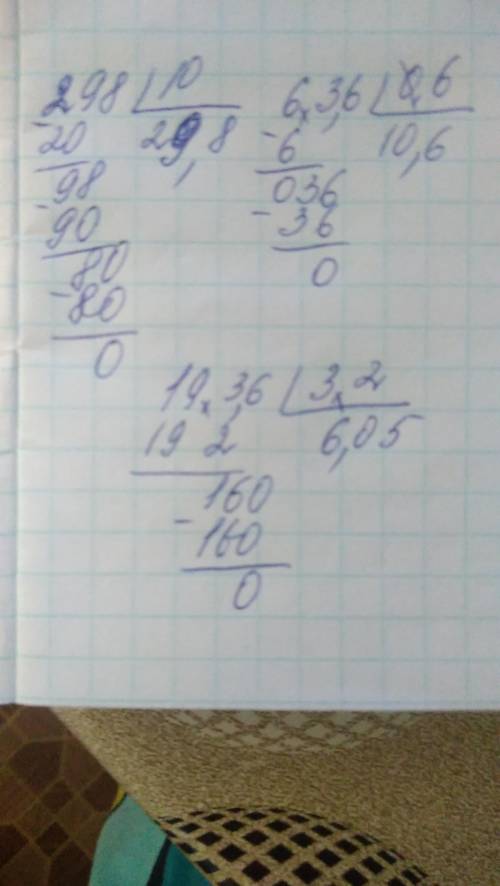 298 | 10
-20 29,8
98
-90
80
-80
0
6,3,6 | 0,6
-6 10,6
036
-36
0
19,3,6 | 3,2
19 2 6,05
160
-160
0